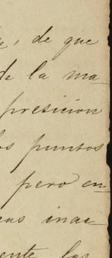 , de que
de la ma
presicion
os puntos
pero en
inac
ente las